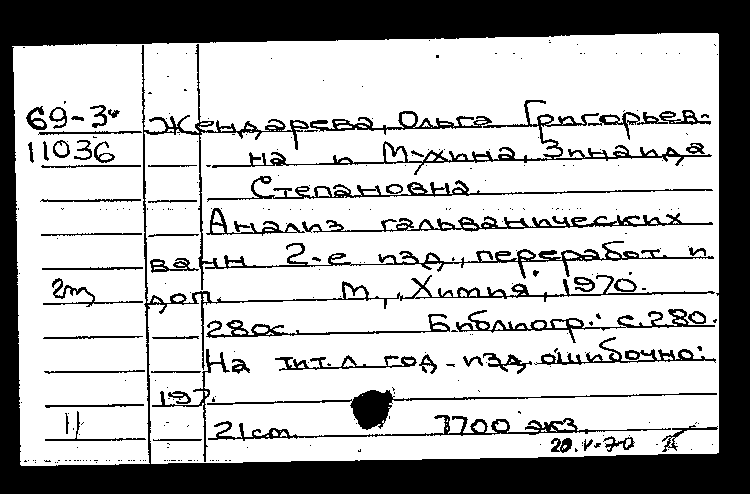 69-3 Жендарева, Ольга Григорьев-
11036 на и Мухина, Зинаида
Степановна.
Анализ гальванических
ванн 2-е изд., переработ. и
доп. М., "Химия", 1970.
280с. Библиогр.: с.280.
На тит. л. год изд. ошибочно:
197.
11 21 cm. 7700 экз.
20.V-70